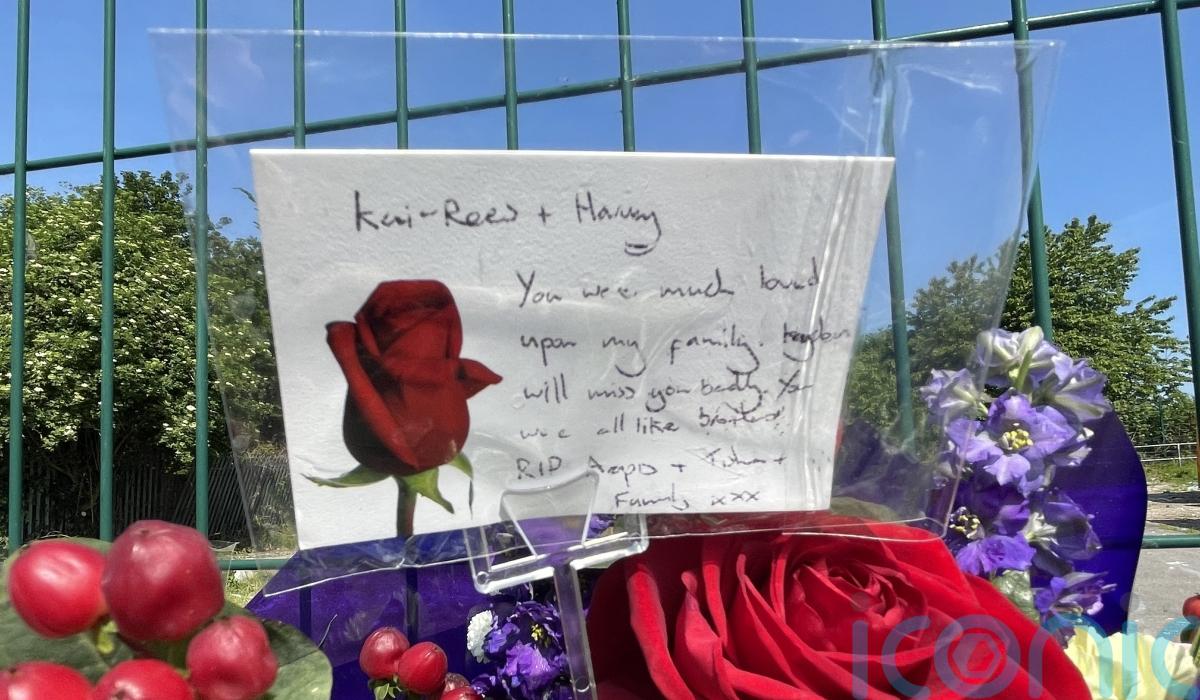 Kai-Rees + Harvey
You were much loved
upon my family.
will miss you badly. You
were all like
RID +
Family xxx
iconic